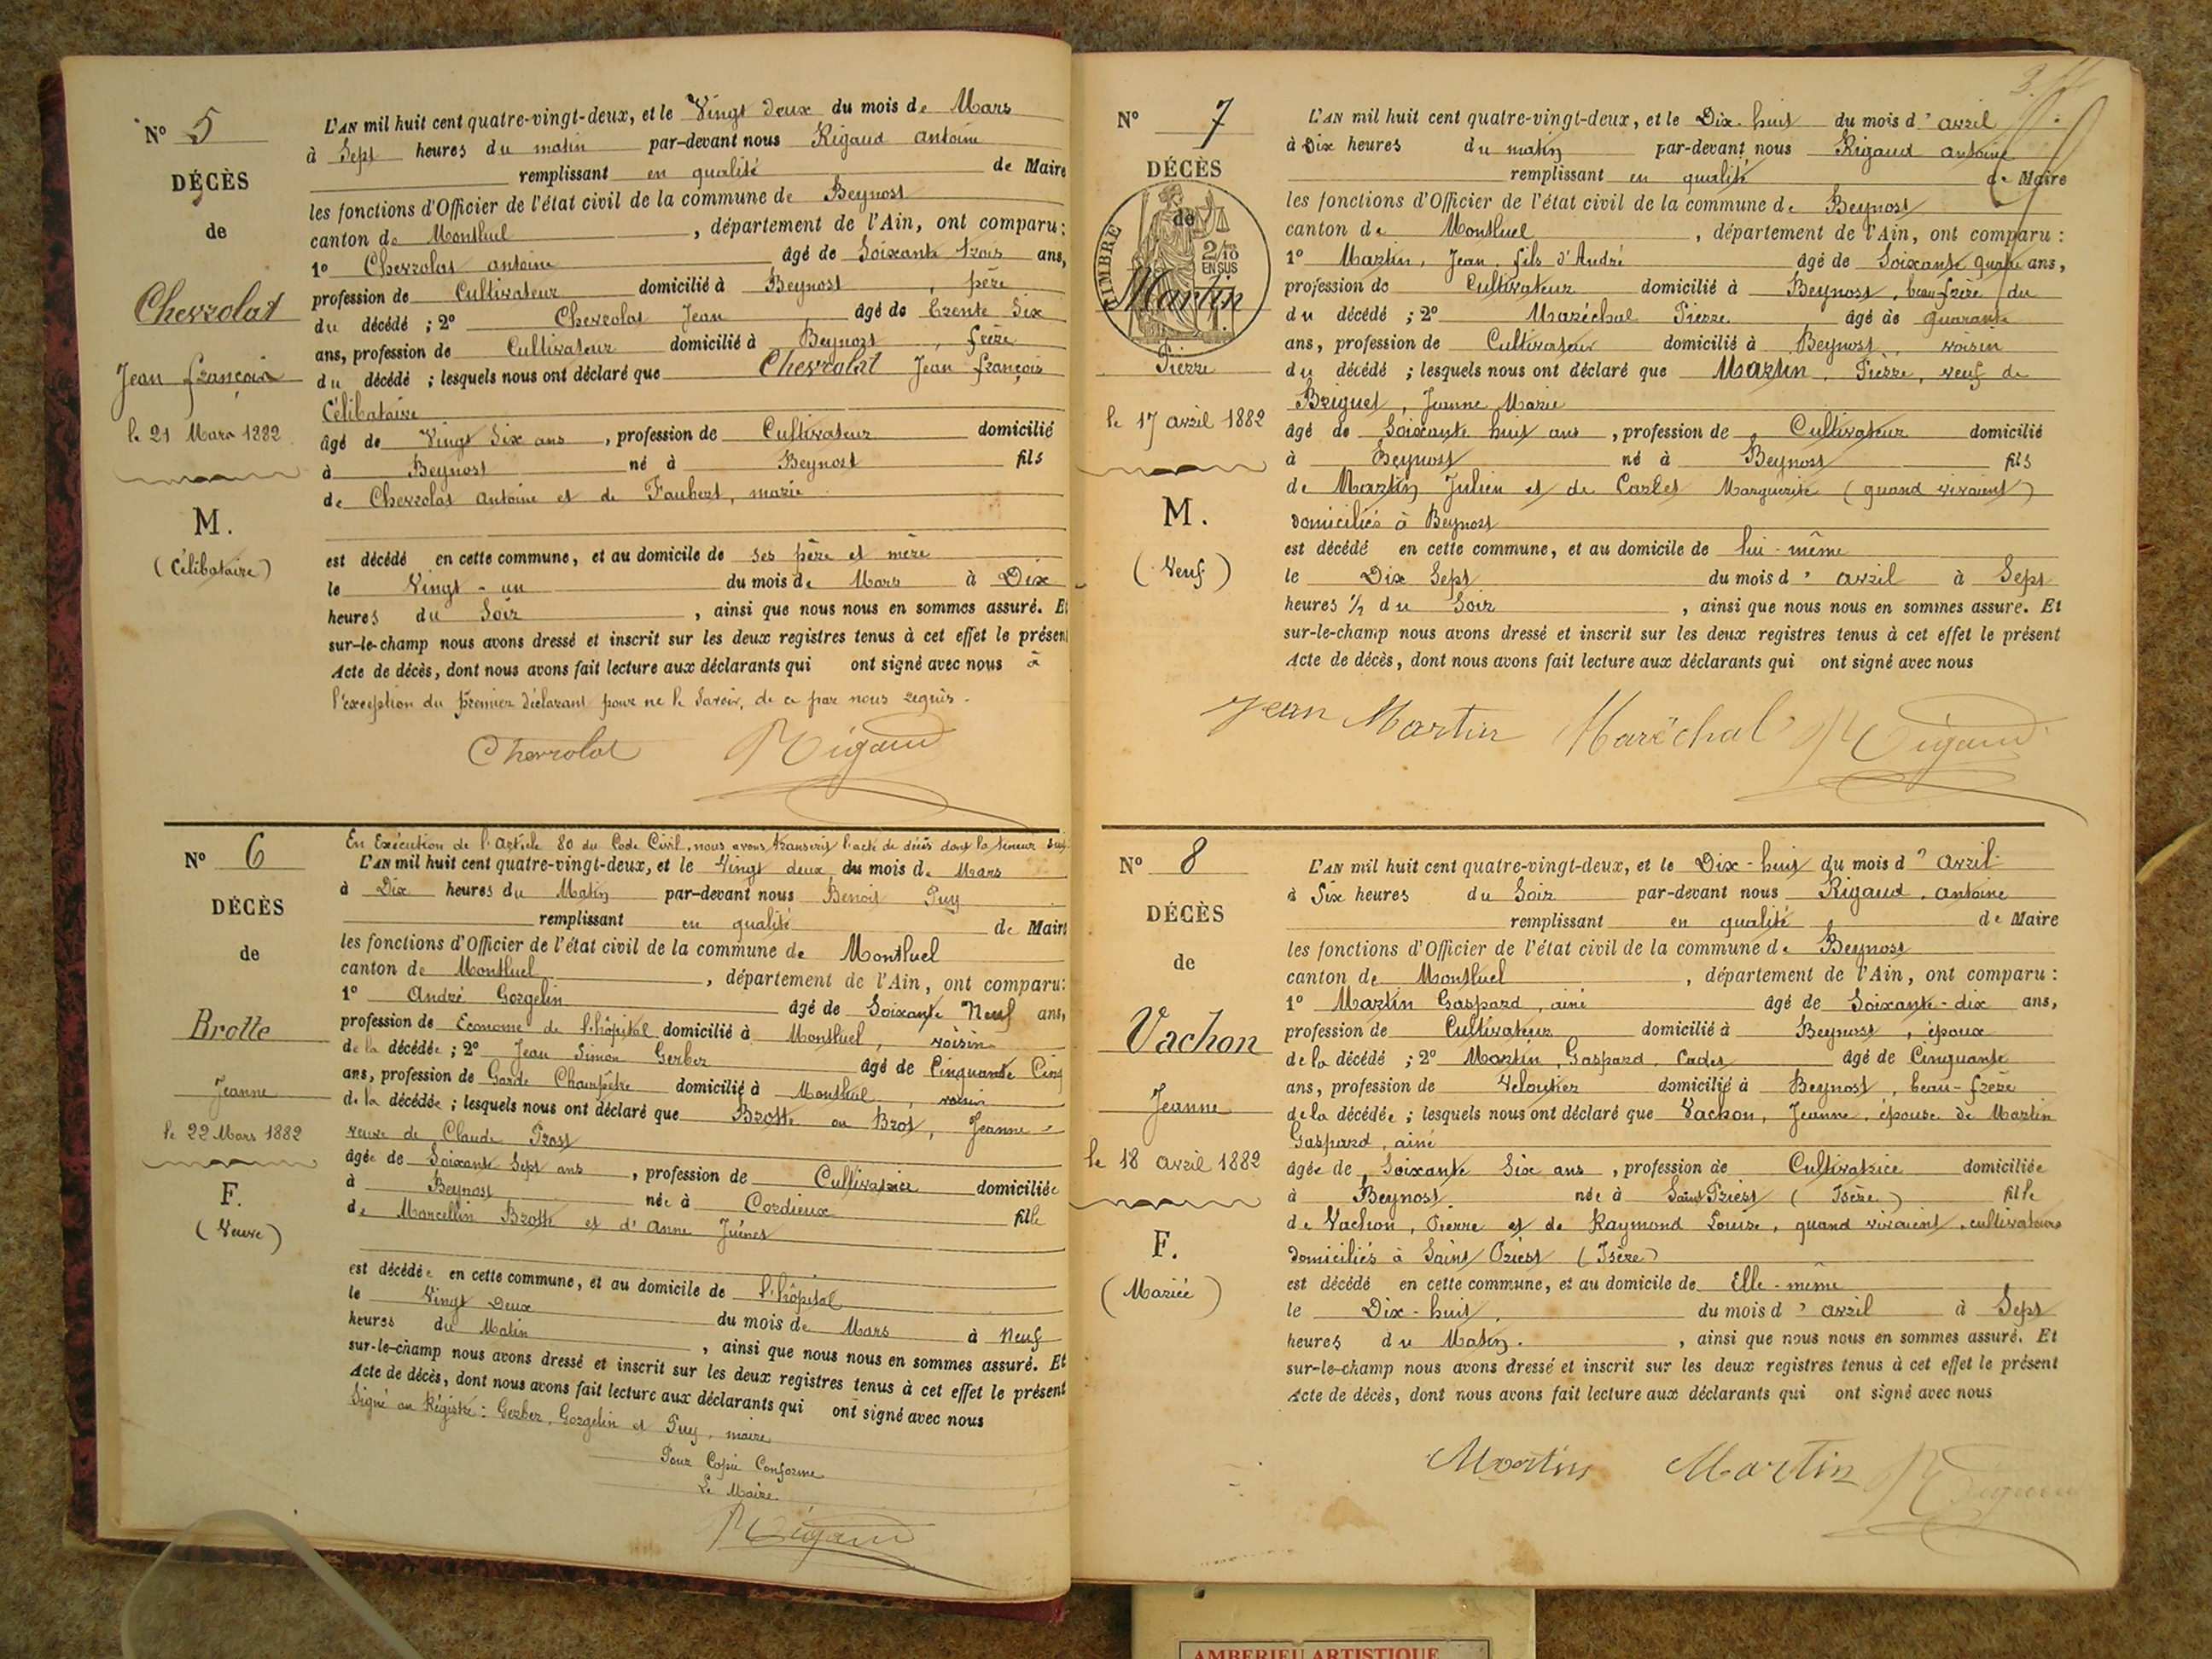 N° 5
DÉCÈS
de
Chevrolat
Jean françois
le 21 Mars 1882
M.
(Célibataire)
L'AN mil huit cent quatre-vingt-deux, et le Vingt deux du mois de Mars
à Sept heures du matin par-devant nous Rigaud antoine
remplissant en qualité de Maire
les fonctions d'Officier de l'état civil de la commune de Beynost
canton de Montluel, département de l'Ain, ont comparu:
1° Chevrolat antoine âgé de Soixante trois ans,
profession de Cultivateur domicilié à Beynost, père
du décédé; 2° Chevrolat Jean âgé de Trente Six
ans, profession de Cultivateur domicilié à Beynost, frère
du décédé; lesquels nous ont déclaré que Chevrolat Jean françois
Célibataire
âgé de Vingt Six ans, profession de Cultivateur domicilié
à Beynost né à Beynost fils
de Chevrolat antoine et de Faubert, marie
est décédé en cette commune, et au domicile de ses père et mère
le Vingt-un du mois de Mars à Dix
heures du Soir, ainsi que nous nous en sommes assuré. Et
sur-le-champ nous avons dressé et inscrit sur les deux registres tenus à cet effet le présent
Acte de décès, dont nous avons fait lecture aux déclarants qui ont signé avec nous à
l'exception du premier déclarant pour ne le Savoir, de ce par nous requis.
Chevrolat Rigaud
N° 6
DÉCÈS
de
Brotte
Jeanne
le 22 Mars 1882
F.
(Veuve)
En Exécution de l'Article 80 du Code Civil, nous avons transcrit l'acte de décès dont la teneur suit
L'AN mil huit cent quatre-vingt-deux, et le Vingt deux du mois de Mars
à Dix heures du Matin par-devant nous Benoit Puy
remplissant en qualité de Maire
les fonctions d'Officier de l'état civil de la commune de Montluel
canton de Montluel, département de l'Ain, ont comparu:
1° André Gorgelin âgé de Soixante Neuf ans,
profession de Econome de l'hôpital domicilié à Montluel, voisin
de la décédée; 2° Jean Simon Gerber âgé de Cinquante Cinq
ans, profession de Garde Champêtre domicilié à Montluel, voisin
de la décédée; lesquels nous ont déclaré que Brotte ou Brot, Jeanne
veuve de Claude Prost
âgée de Soixante Sept ans, profession de Cultivatrice domiciliée
à Beynost née à Cordieux fille
de Marcellin Brotte et d'Anne
est décédée en cette commune, et au domicile de l'hôpital
le Vingt Deux du mois de Mars à Neuf
heures du Matin, ainsi que nous nous en sommes assuré. Et
sur-le-champ nous avons dressé et inscrit sur les deux registres tenus à cet effet le présent
Acte de décès, dont nous avons fait lecture aux déclarants qui ont signé avec nous
Signé au Régistre: Gerber, Gorgelin et Puy, maire
Pour Copie Conforme
Le Maire
Rigaud
N° 7
DÉCÈS
de
TIMBRE
2/10
EN SUS
Martin
Pierre
le 17 avril 1882
M.
(Veuf)
L'AN mil huit cent quatre-vingt-deux, et le Dix-huit du mois d'avril
à Dix heures du matin par-devant nous Rigaud antoine
remplissant en qualité de Maire
les fonctions d'Officier de l'état civil de la commune de Beynost
canton de Montluel, département de l'Ain, ont comparu:
1° Martin, Jean, fils d'André âgé de Soixante quatre ans,
profession de Cultivateur domicilié à Beynost, beau-frère du
du décédé; 2° Maréchal Pierre âgé de quarante
ans, profession de Cultivateur domicilié à Beynost, voisin
du décédé; lesquels nous ont déclaré que Martin, Pierre, veuf de
Briguet, Jeanne Marie
âgé de Soixante huit ans, profession de Cultivateur domicilié
à Beynost né à Beynost fils
de Martin Julien et de Carlet Marguerite (quand vivaient)
domiciliés à Beynost
est décédé en cette commune, et au domicile de lui-même
le Dix Sept du mois d'avril à Sept
heures 1/2 du Soir, ainsi que nous nous en sommes assuré. Et
sur-le-champ nous avons dressé et inscrit sur les deux registres tenus à cet effet le présent
Acte de décès, dont nous avons fait lecture aux déclarants qui ont signé avec nous
Jean Martin Maréchal Rigaud
N° 8
DÉCÈS
de
Vachon
Jeanne
le 18 avril 1882
F.
(Mariée)
L'AN mil huit cent quatre-vingt-deux, et le Dix-huit du mois d'avril
à Six heures du Soir par-devant nous Rigaud, antoine
remplissant en qualité de Maire
les fonctions d'Officier de l'état civil de la commune de Beynost
canton de Montluel, département de l'Ain, ont comparu:
1° Martin Gaspard, ainé âgé de Soixante-dix ans,
profession de Cultivateur domicilié à Beynost, époux
de la décédé; 2° Martin, Gaspard, Cadet âgé de Cinquante
ans, profession de Veloutier domicilié à Beynost, beau-frère
de la décédée; lesquels nous ont déclaré que Vachon, Jeanne, épouse de Martin
Gaspard, ainé
âgée de Soixante Six ans, profession de Cultivatrice domiciliée
à Beynost née à Saint Priest (Isère) fille
de Vachon, Pierre et de Raymond Louise, quand vivaient, cultivateurs
domiciliés à Saint Priest (Isère)
est décédé en cette commune, et au domicile de Elle-même
le Dix-huit du mois d'avril à Sept
heures du Matin., ainsi que nous nous en sommes assuré. Et
sur-le-champ nous avons dressé et inscrit sur les deux registres tenus à cet effet le présent
Acte de décès, dont nous avons fait lecture aux déclarants qui ont signé avec nous
Martin Martin Rigaud
AMBERIEU ARTISTIQUE